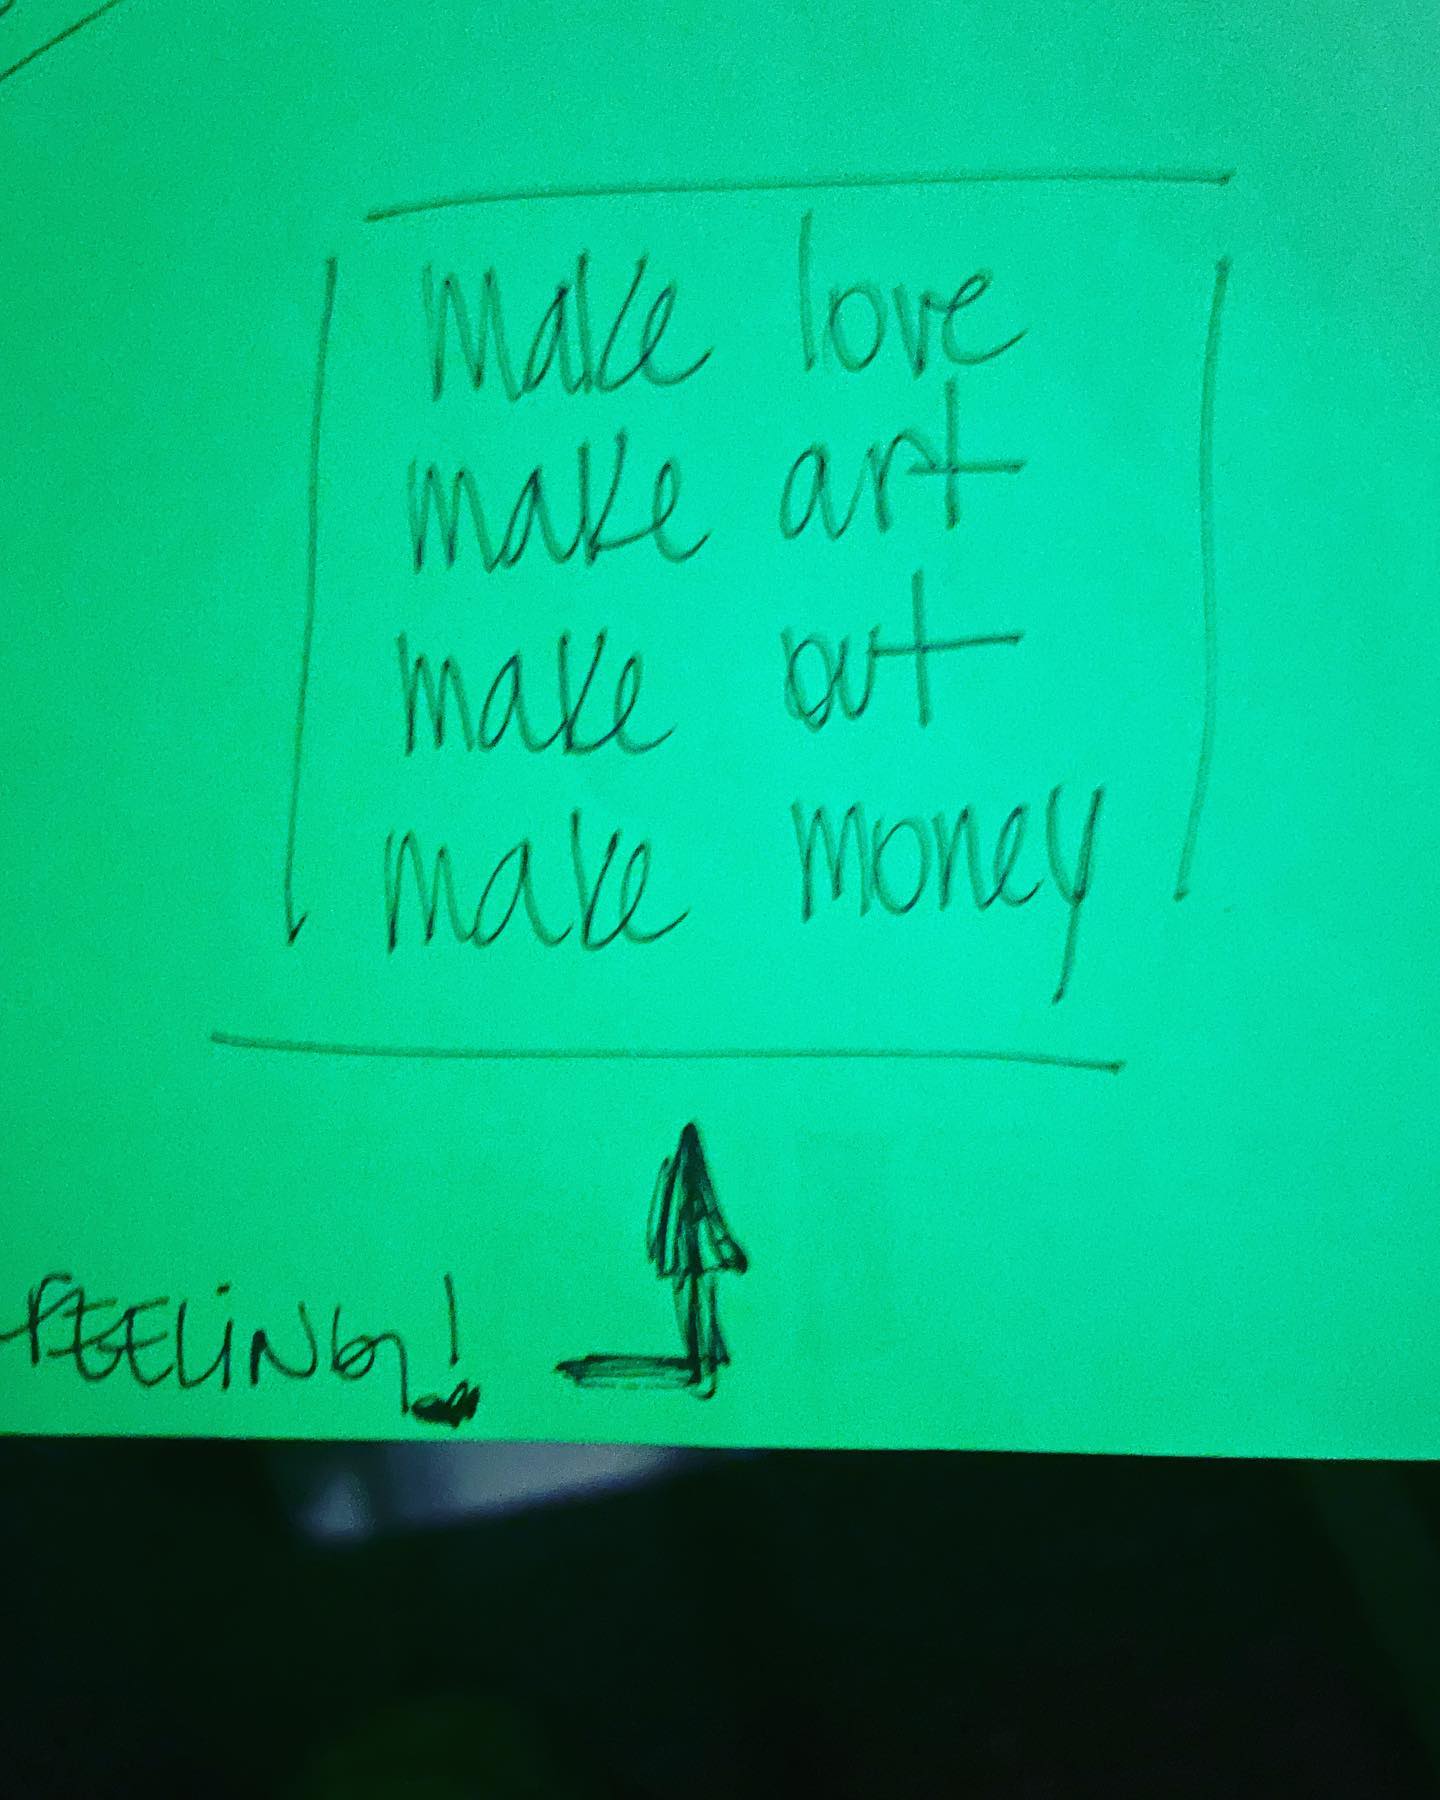 make love
make art
make out
make money
FEELiNG!